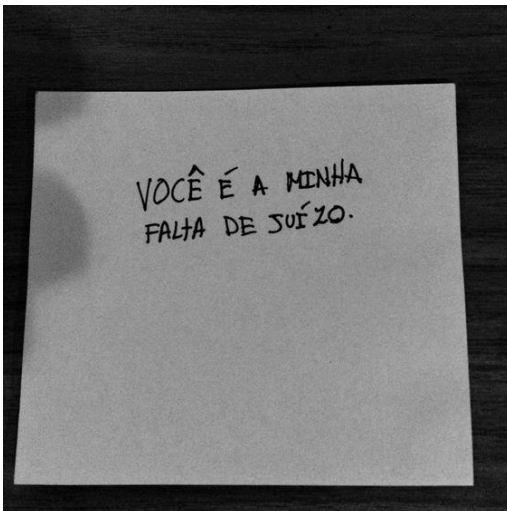 VOCÊ É A MINHA
FALTA DE JUÍZO.